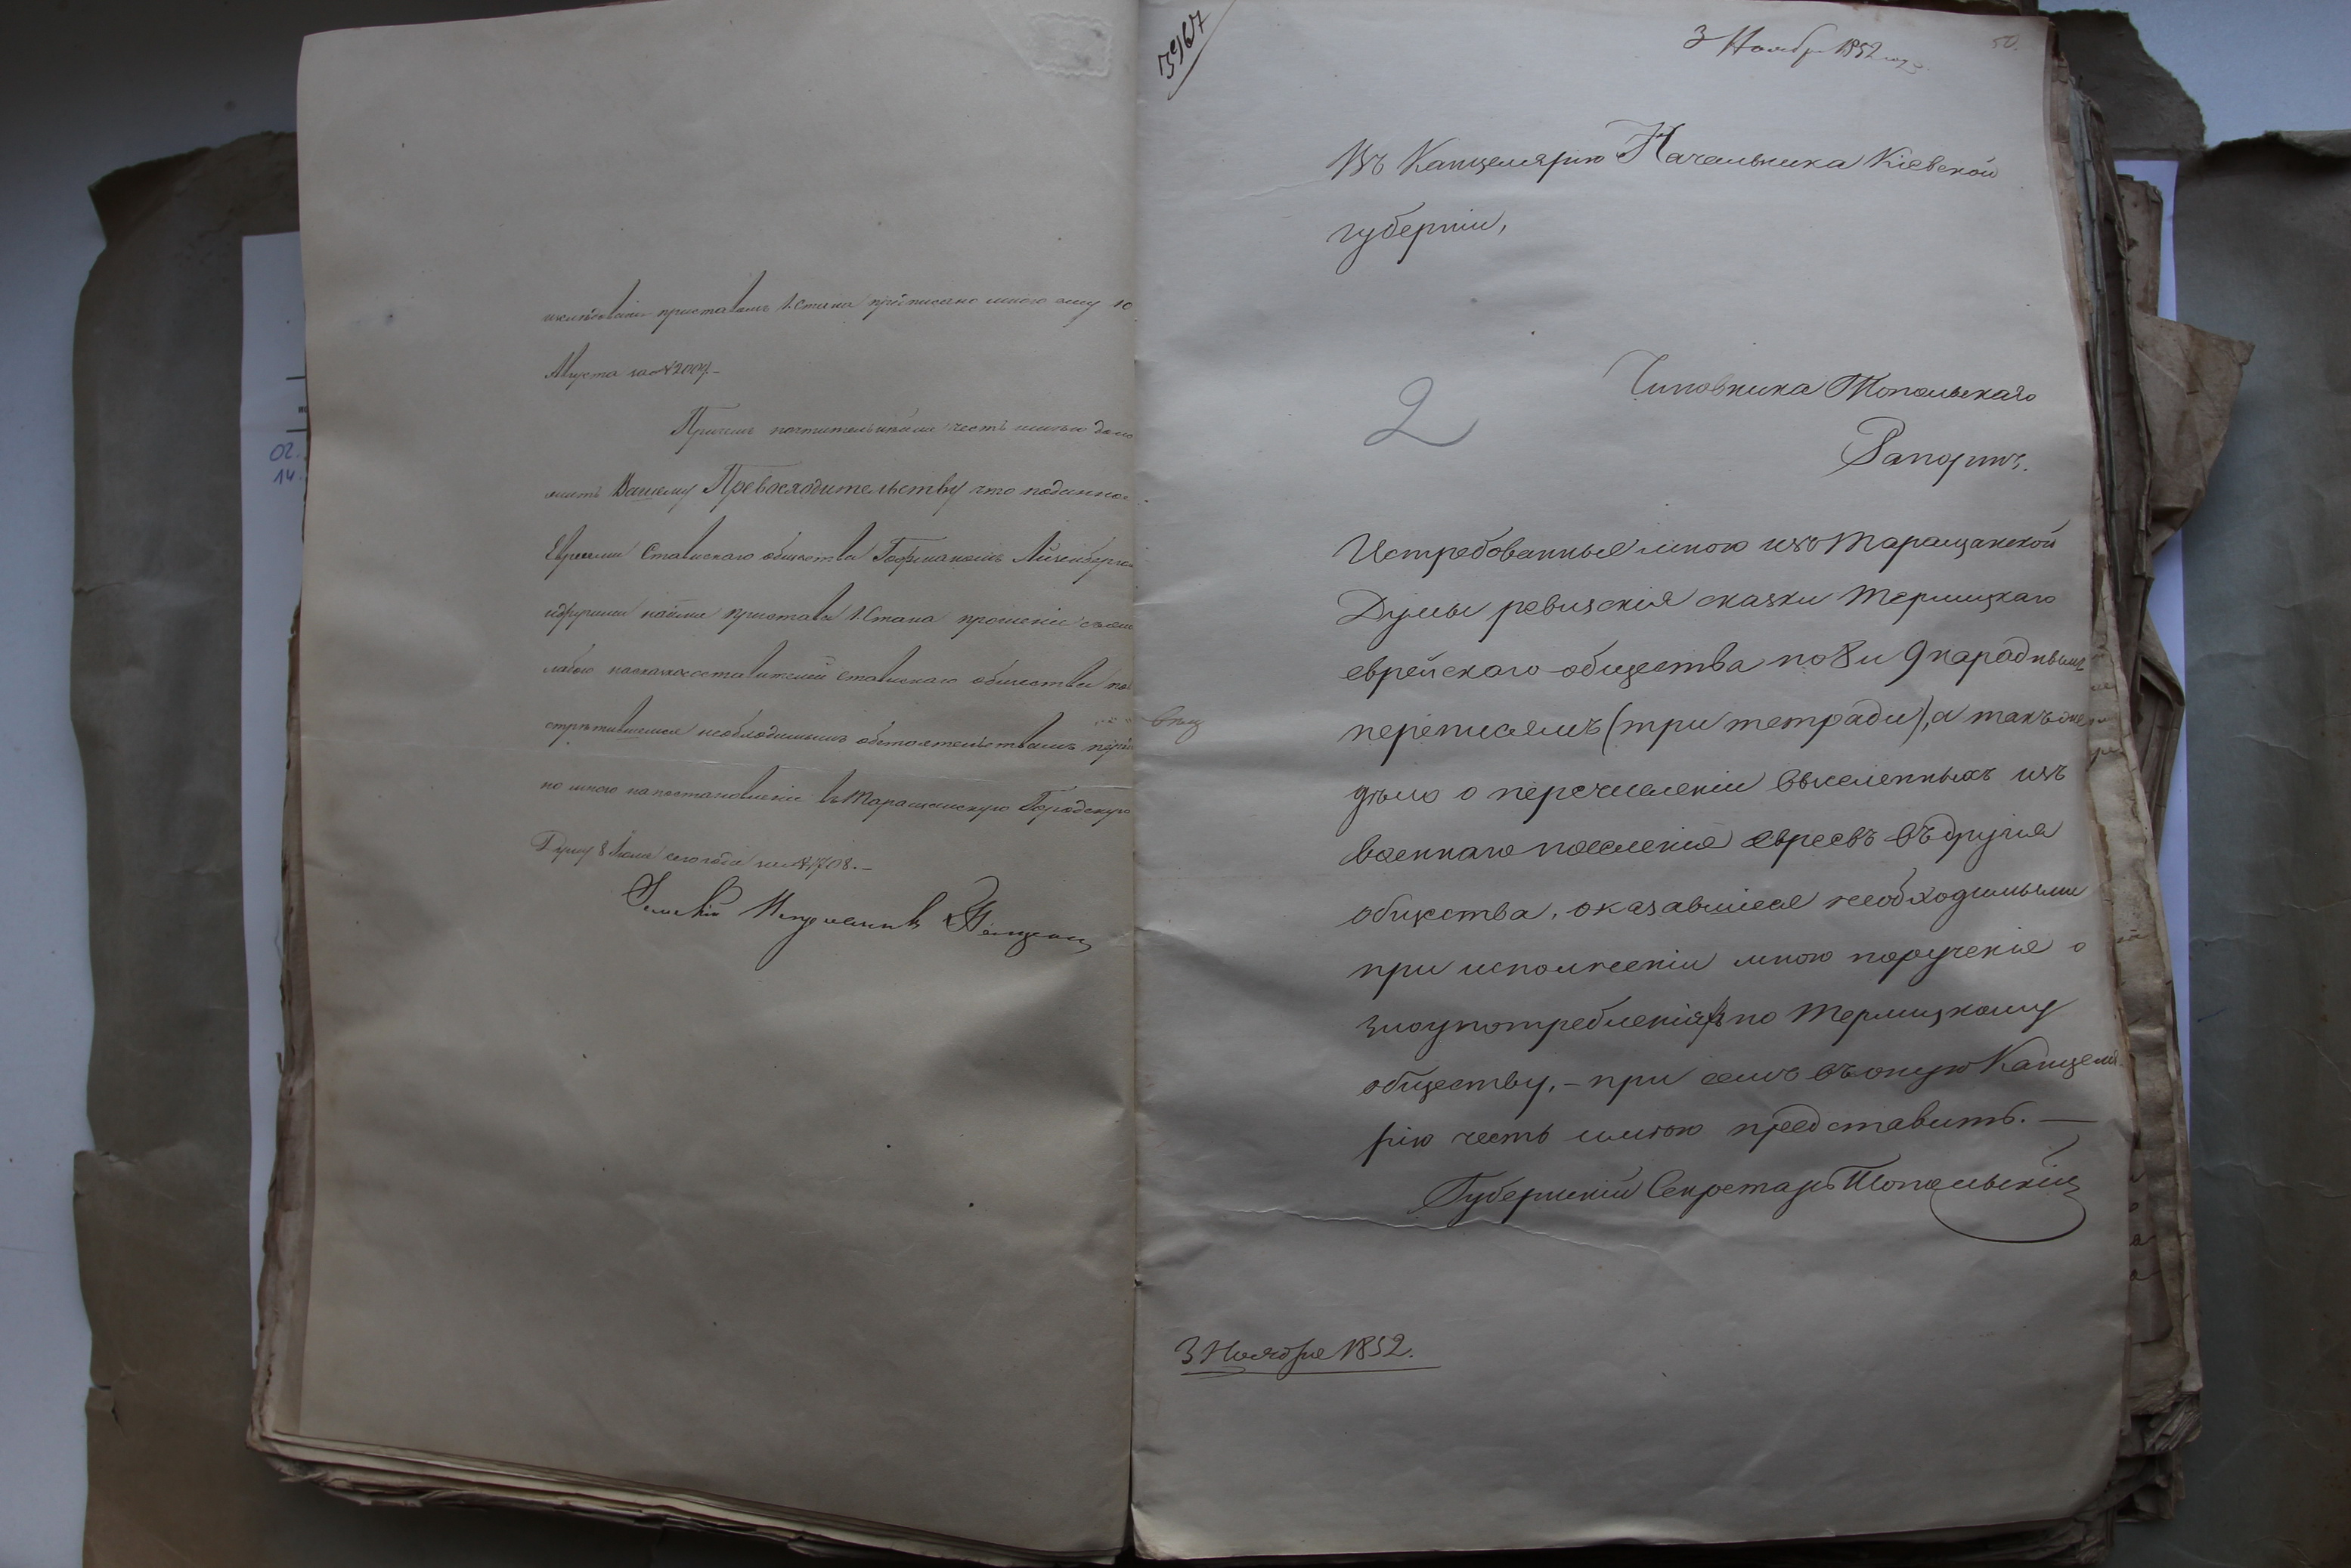 приставомъ 1. Стана предписано мною ему 10
Августа за №
Причемъ почтительнѣйше честь имѣю доло
жить Вашему Превосходительству что поданное
Евреями Ставискаго общества Гофманомъ
и другими Пристава 1. Стана прошеніе
Ставискаго общества по
встрѣтившимся необходимымъ обстоятельствамъ
но мною на постановленіе въ Таращанскую Городскую
Думу 8 сего года за № 1708.—
Земскій Исправникъ
02.
14.
3967
3 Ноября 1852 года.
50.
Въ Канцелярію Начальника Кіевской
губерніи,
2
Чиновника Топольскаго
Рапортъ.
Истребованные мною изъ Таращанской
Думы ревизскія сказки Термицкаго
еврейскаго общества по 8 и 9 народнымъ
переписямъ (три тетради), а такъ же
дѣло о перечисленіи выселенныхъ изъ
военнаго поселенія евреевъ въ другія
общества, оказавшіеся необходимыми
при исполненіи мною порученія о
злоупотребленіяхъ по Термицкому
обществу,– при семъ въ оную Канцеля
рію честь имѣю представить.—
Губернскій Секретарь Топольскій
3 Ноября 1852.